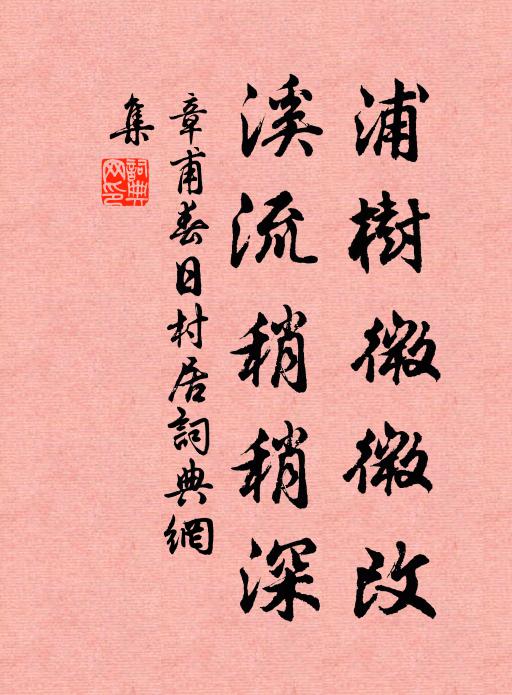 浦樹微微改
溪流稍稍深
章甫春日村居詞典網
集
詞典
网印